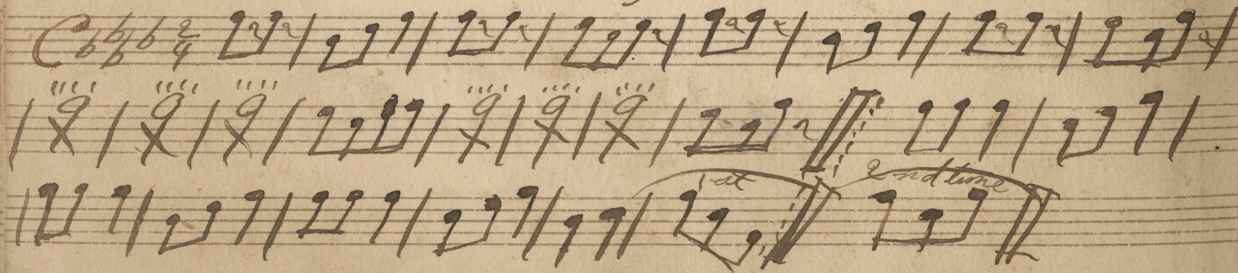 2
4
1st 2nd time